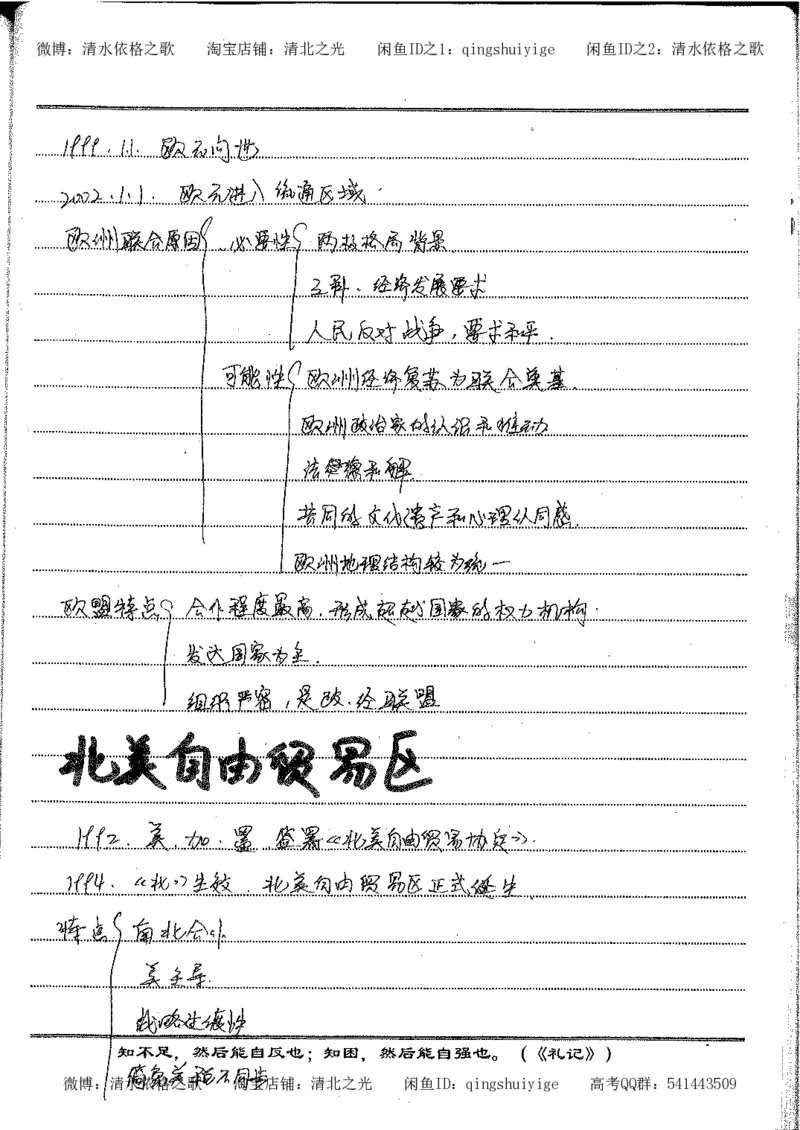 微博：清水依格之歌 淘宝店铺：清北之光 闲鱼ID之1：qingshuiyige 闲鱼ID之2：清水依格之歌
1999.1.1. 欧元问世
2002.1.1. 欧元进入流通区域.
欧洲联合原因 必要性 两极格局背景
主科、经济发展要求
人民反对战争，要求和平.
可能性 欧洲经济复苏为联合奠基.
欧洲政治家的认识和推动
法德和解
共同的文化遗产和心理认同感.
欧洲地理结构较为统一
欧盟特点 合作程度最高.形成超越国家的权力机构.
发达国家为主.
组织严密，是政.经联盟
北美自由贸易区
1992. 美.加.墨 签署《北美自由贸易协定》.
1994. 《北》生效.北美自由贸易区正式诞生
特点 南北合作
美主导.
战略过渡性
知不足，然后能自反也；知困，然后能自强也。（《礼记》）
微博：清水依格之歌 淘宝店铺：清北之光 闲鱼ID：qingshuiyige 高考QQ群：541443509